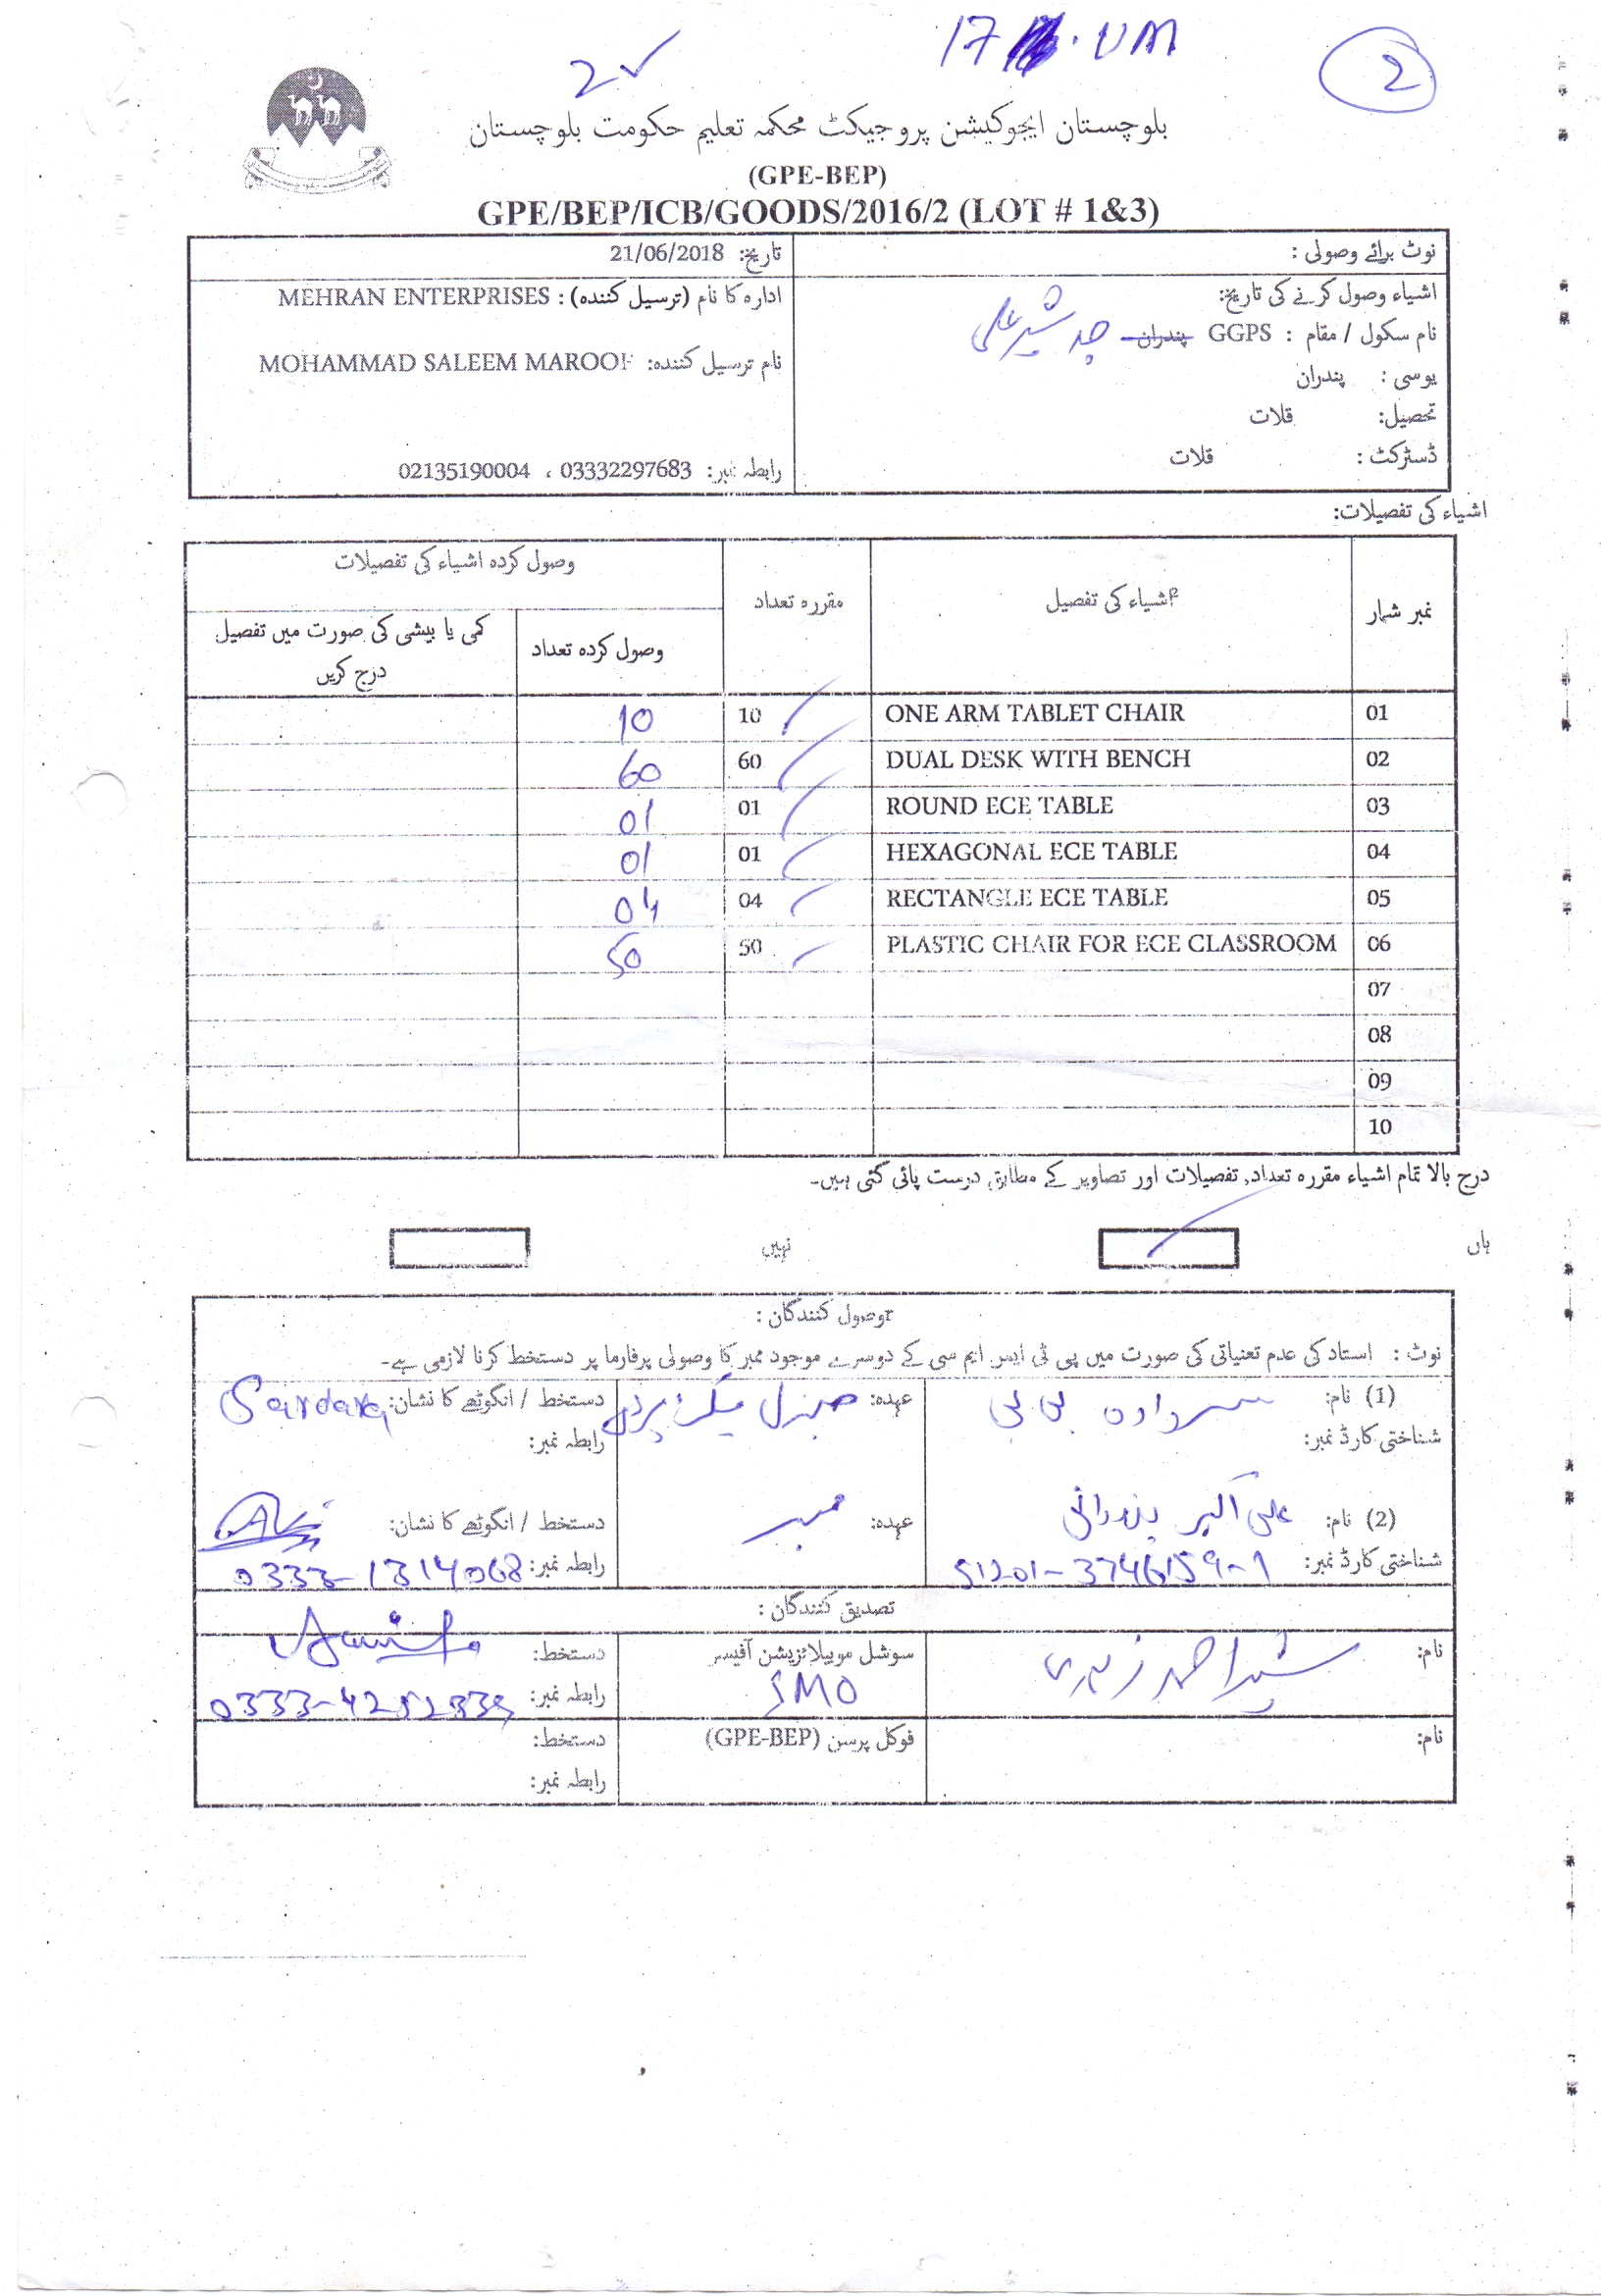 2 ✓
17 . UM
2
بلوچستان ایجوکیشن پروجیکٹ محکمہ تعلیم حکومت بلوچستان
(GPE-BEP)
GPE/BEP/ICB/GOODS/2016/2 (LOT # 1&3)
نوٹ برائے وصولی :
تاریخ: 21/06/2018
اشیاء وصول کرنے کی تاریخ:
ادارہ کا نام (ترسیل کنندہ) : MEHRAN ENTERPRISES
نام سکول / مقام : GGPS پندران شیر علی
نام ترسیل کنندہ: MOHAMMAD SALEEM MAROOF
یوسی : پندران
تحصیل: قلات
ڈسٹرکٹ : قلات
رابطہ نمبر: 03332297683 ، 02135190004
اشیاء کی تفصیلات:
نمبر شمار اشیاء کی تفصیل مقررہ تعداد وصول کردہ اشیاء کی تفصیلات
وصول کردہ تعداد کمی یا بیشی کی صورت میں تفصیل درج کریں
01 ONE ARM TABLET CHAIR 10 10
02 DUAL DESK WITH BENCH 60 60
03 ROUND ECE TABLE 01 01
04 HEXAGONAL ECE TABLE 01 01
05 RECTANGLE ECE TABLE 04 04
06 PLASTIC CHAIR FOR ECE CLASSROOM 50 50
07
08
09
10
درج بالا تمام اشیاء مقررہ تعداد, تفصیلات اور تصاویر کے مطابق درست پائی گئی ہیں۔
ہاں ✓ نہیں
وصول کنندگان :
نوٹ : استاد کی عدم تعنیاتی کی صورت میں پی ٹی ایس ایم سی کے دوسرے موجود ممبر کا وصولی پرفارما پر دستخط کرنا لازمی ہے۔
(1) نام: سردارہ بی بی عہدہ: جنرل سیکرٹری دستخط / انگوٹھے کا نشان: Sardara
شناختی کارڈ نمبر: رابطہ نمبر:
(2) نام: علی اکبر پندرانی عہدہ: ممبر دستخط / انگوٹھے کا نشان:
شناختی کارڈ نمبر: 51201-3746159-1 رابطہ نمبر: 0333-1314068
تصدیق کنندگان :
نام: احمد زہری سوشل موبیلائزیشن آفیسر دستخط:
SMO رابطہ نمبر: 0333-4252839
نام: فوکل پرسن (GPE-BEP) دستخط:
رابطہ نمبر: